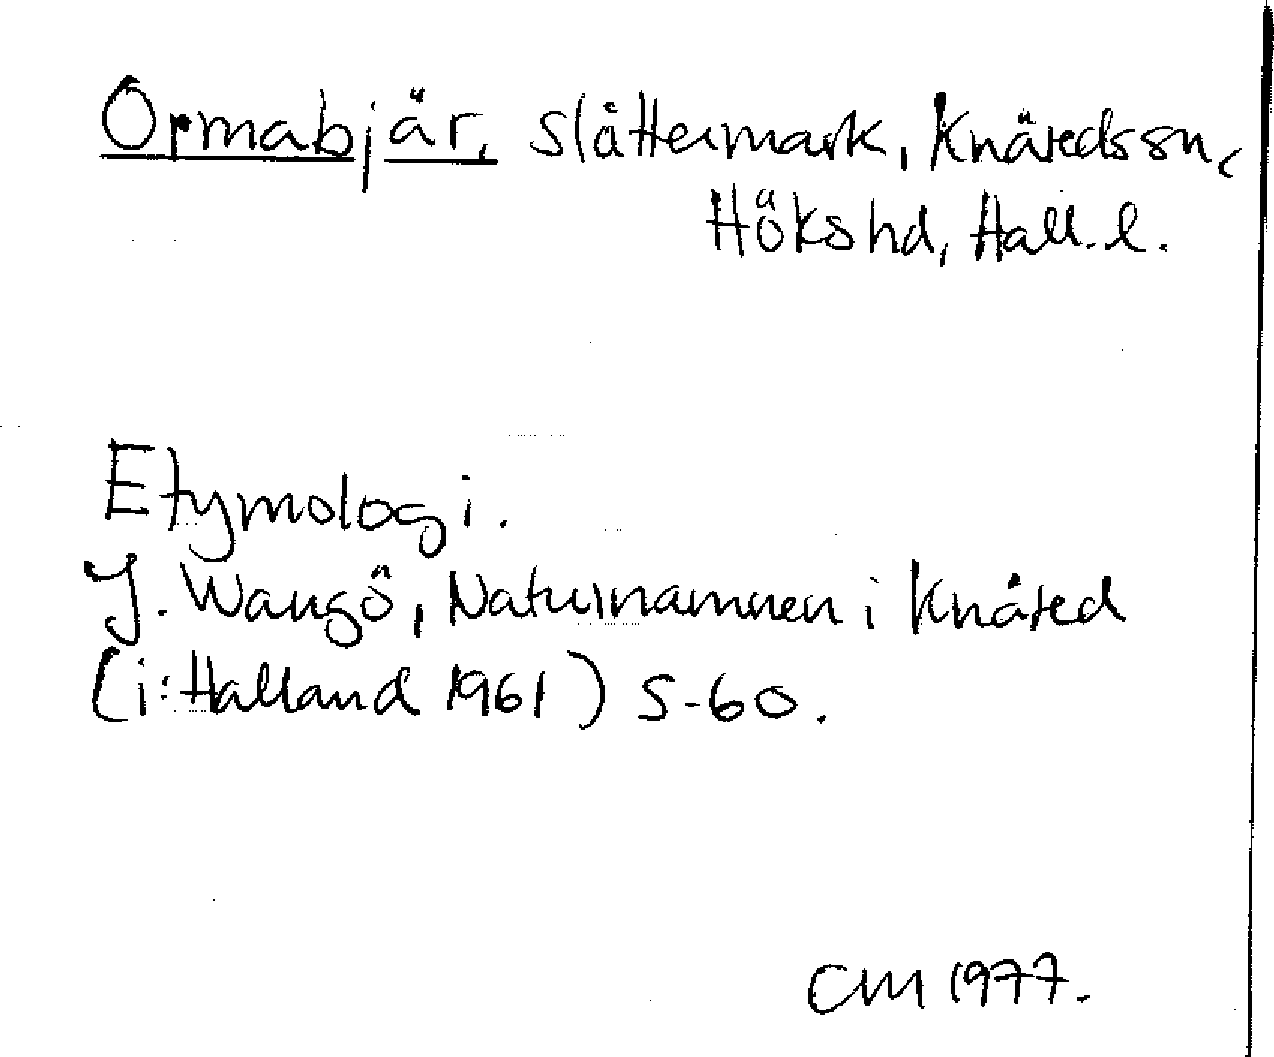 Ormabjär, slåttermark, Knäreds sn,
Höks hd, Hall. l.
Etymologi.
J. Wangö, Naturnamnen i Knäred
(i: Halland 1961) s-60.
CM 1977.